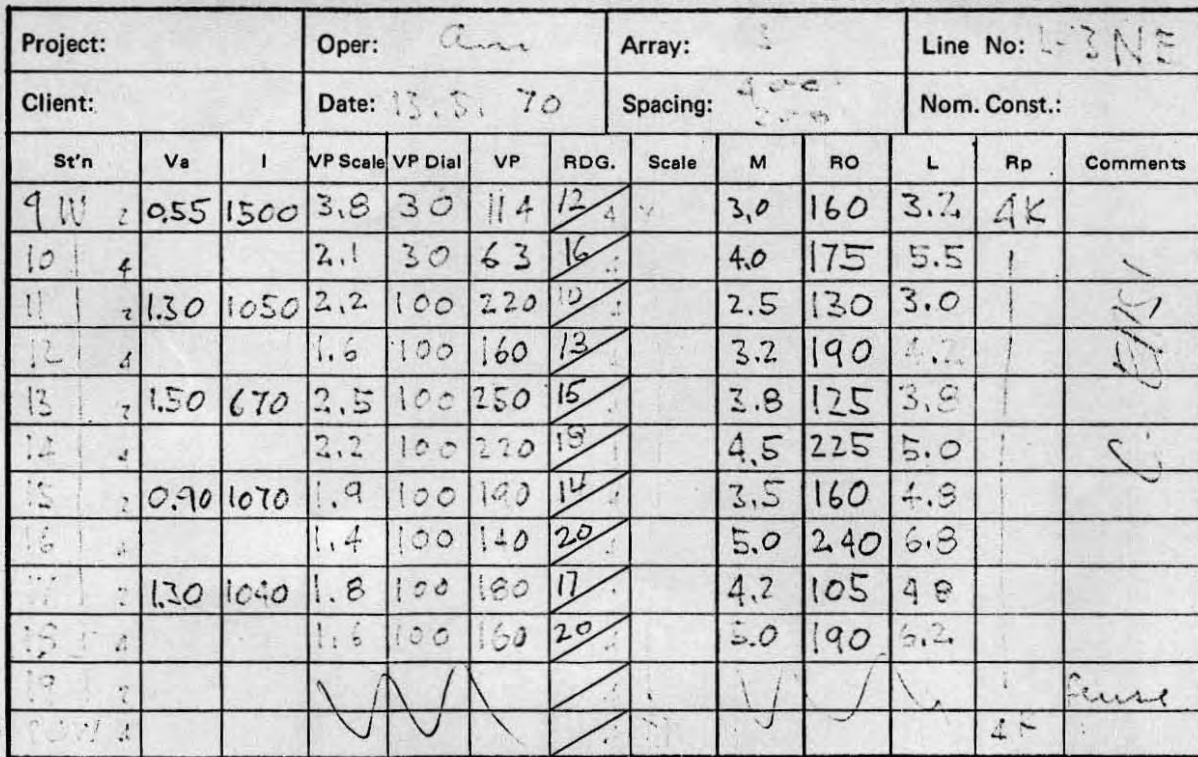 Project: Oper: Array: 3 Line No: L-3NE
Client: Date: 13. 5. 70 Spacing: 400' Nom. Const.:
St'n Va I VP Scale VP Dial VP RDG. Scale M RO L Rp Comments
9 W 2 0.55 1500 3.8 30 114 12/4 3.0 160 3.2 4K
10 4 2.1 30 63 16/4 4.0 175 5.5
11 2 1.30 1050 2.2 100 220 10/4 2.5 130 3.0
12 4 1.6 100 160 13/4 3.2 190 4.2
13 2 1.50 670 2.5 100 250 15/4 3.8 125 3.8
14 4 2.2 100 220 18/4 4.5 225 5.0
15 2 0.90 1070 1.9 100 190 14/4 3.5 160 4.8
16 4 1.4 100 140 20/4 5.0 240 6.8
2 1.30 1040 1.8 100 180 17 4.2 105 4.8
18 4 1.6 100 160 20/4 5.0 190 6.2
19 2
4